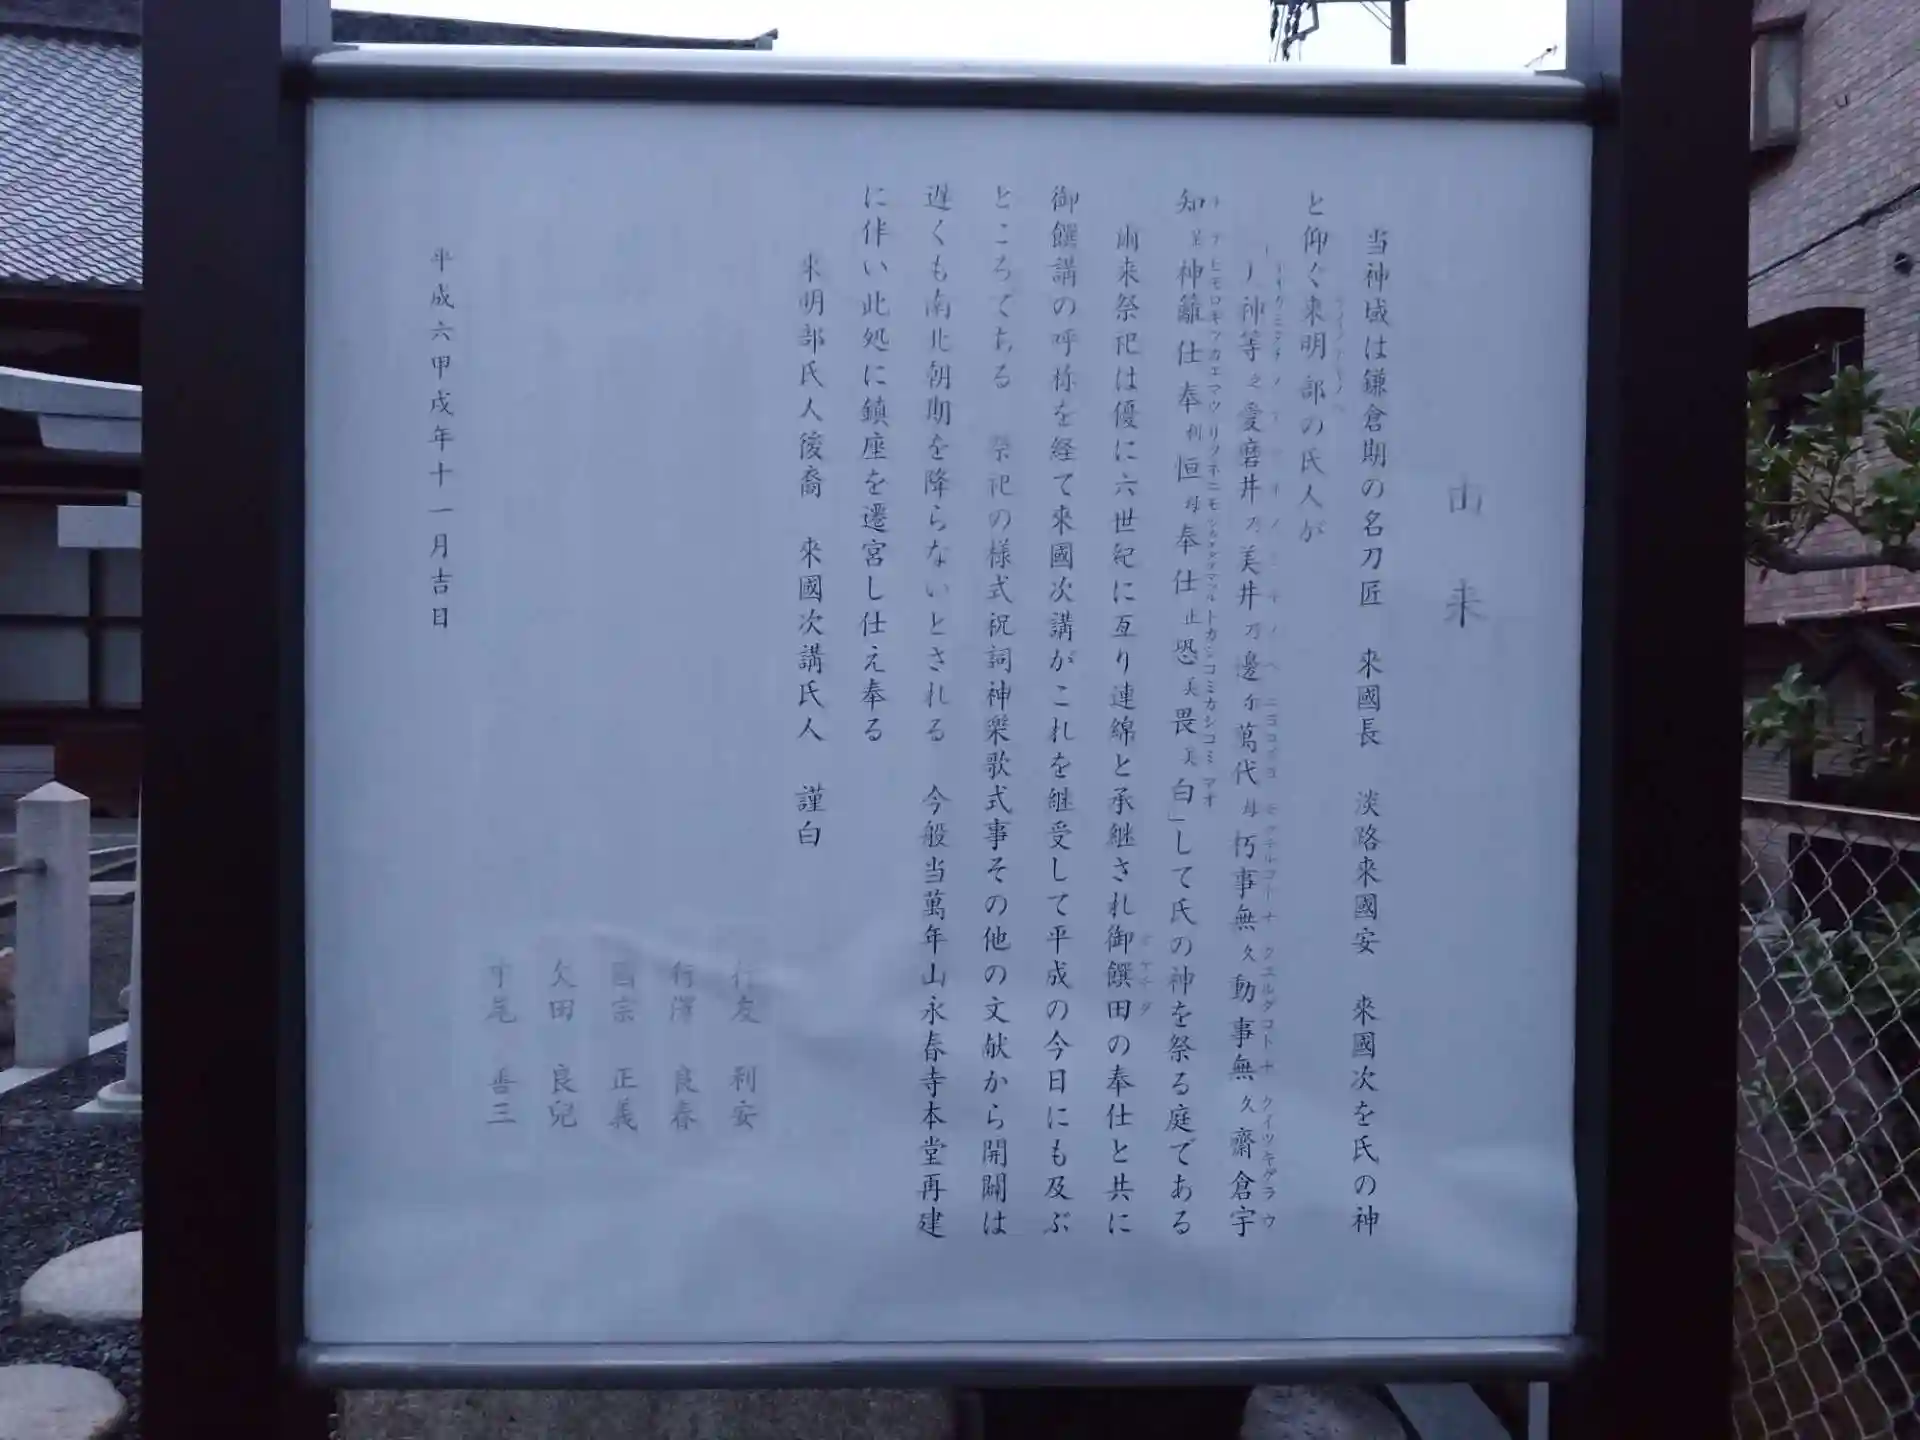 由来
当神域は鎌倉期の名刀匠　来國長　淡路来國安　來國次を氏の神
と仰ぐ来明部の氏人が
神等之愛磨井乃美井乃邊尓萬代母朽事無久動事無久齋倉宇
知呈神籬仕奉利恒母奉仕止恐美畏美白」して氏の神を祭る庭である
由来祭祀は優に六世紀に亙り連綿と承継され御饌田の奉仕と共に
御饌講の呼称を経て來國次講がこれを継受して平成の今日にも及ぶ
ところである　祭祀の様式祝詞神楽歌式事その他の文献から開闢は
遅くも南北朝期を降らないとされる　今般当萬年山永春寺本堂再建
に伴い此処に鎮座を遷宮し仕え奉る
来明部氏人後裔　來國次講氏人　謹白
行友　利安
行澤　良春
國宗　正義
欠田　良兒
中尾　善三
平成六甲戌年十一月吉日